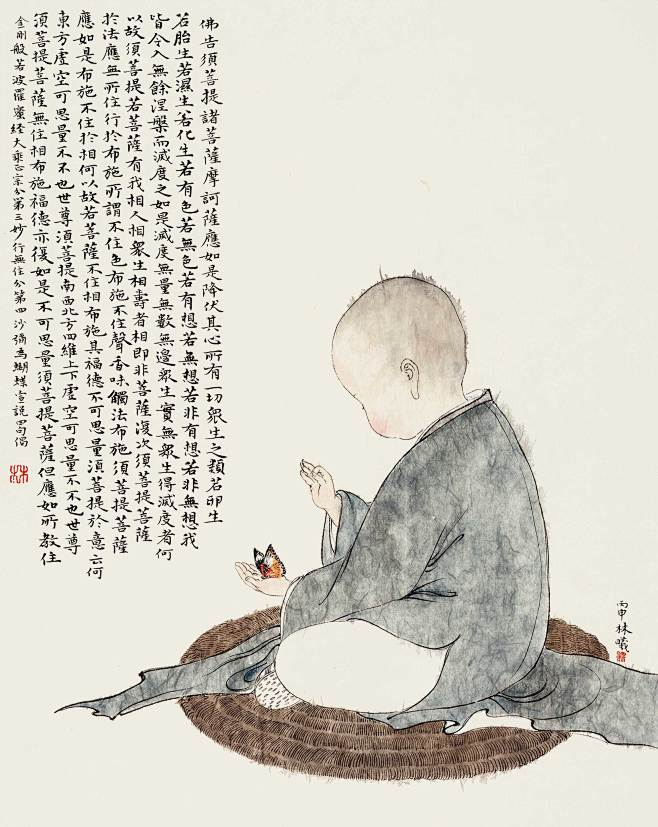 佛告須菩提諸菩薩摩訶薩應如是降伏其心所有一切衆生之類若卵生
若胎生若濕生若化生若有色若無色若有想若無想若非有想若非無想我
皆令入無餘涅槃而滅度之如是滅度無量無數無邊衆生實無衆生得滅度者何
以故須菩提若菩薩有我相人相衆生相壽者相即非菩薩復次須菩提菩薩
於法應無所住行於布施所謂不住色布施不住聲香味觸法布施須菩提菩薩
應如是布施不住於相何以故若菩薩不住相布施其福德不可思量須菩提於意云何
東方虛空可思量不不也世尊須菩提南西北方四維上下虛空可思量不不也世尊
須菩提菩薩無住相布施福德亦復如是不可思量須菩提菩薩但應如所教住
金剛般若波羅蜜经大乘正宗分第三妙行無住分第四沙彌為蝴蝶宣説偈
林
丙申林曦